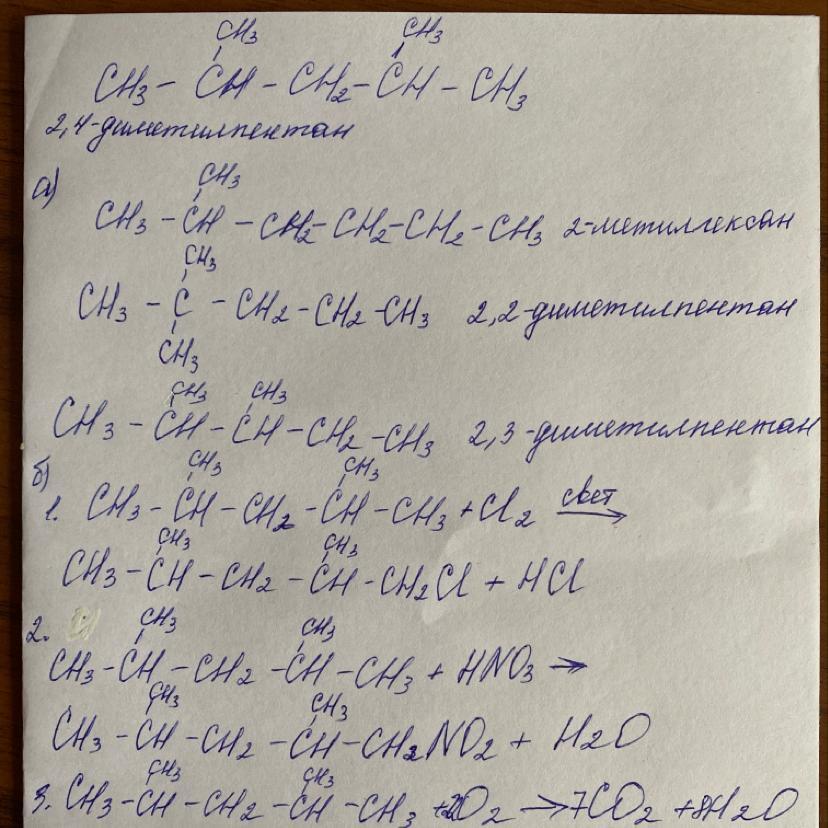 CH3 CH3
CH3 - CH - CH2 - CH - CH3
2,4-диметилпентан
а)
CH3
CH3 - CH - CH2 - CH2 - CH2 - CH3 2-метилгексан
CH3
CH3 - C - CH2 - CH2 - CH3 2,2-диметилпентан
CH3
CH3 CH3
CH3 - CH - CH - CH2 - CH3 2,3-диметилпентан
б)
CH3 CH3
1. CH3 - CH - CH2 - CH - CH3 + Cl2 свет →
CH3 CH3
CH3 - CH - CH2 - CH - CH2Cl + HCl
2.
CH3 CH3
CH3 - CH - CH2 - CH - CH3 + HNO3 →
CH3 CH3
CH3 - CH - CH2 - CH - CH2NO2 + H2O
CH3 CH3
3. CH3 - CH - CH2 - CH - CH3 + O2 → 7CO2 + 8H2O